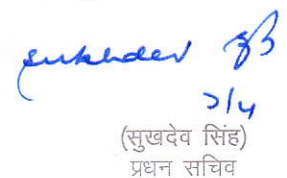 sukhdev
7/4
(सुखदेव सिंह)
प्रधन सचिव